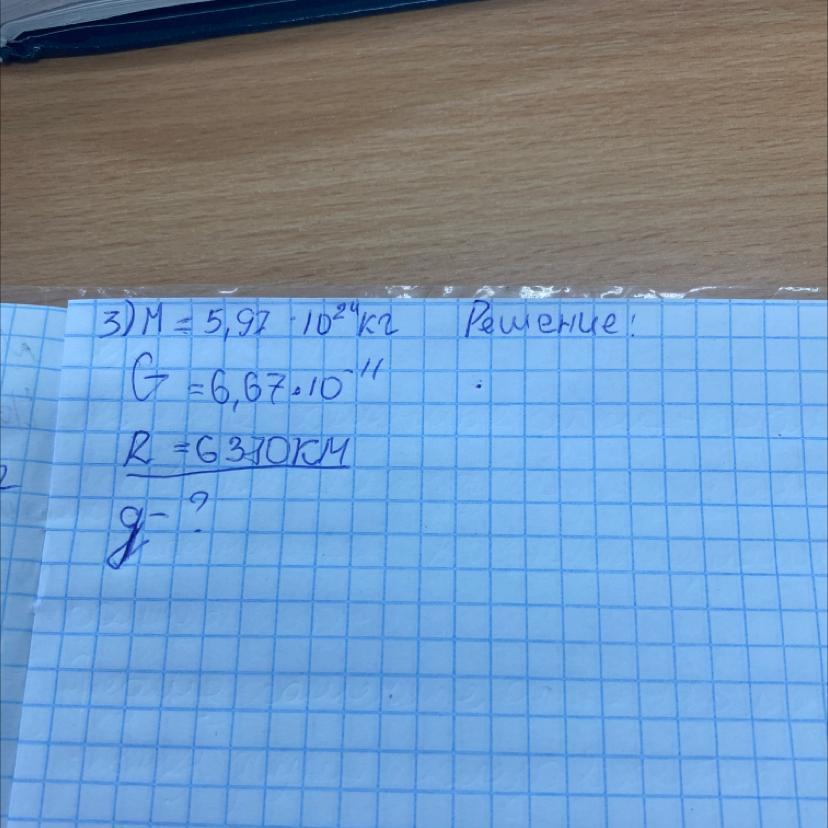 3) M = 5,97 · 10²⁴ кг Решение:
G = 6,67 · 10⁻¹¹
R = 6370 км
g - ?